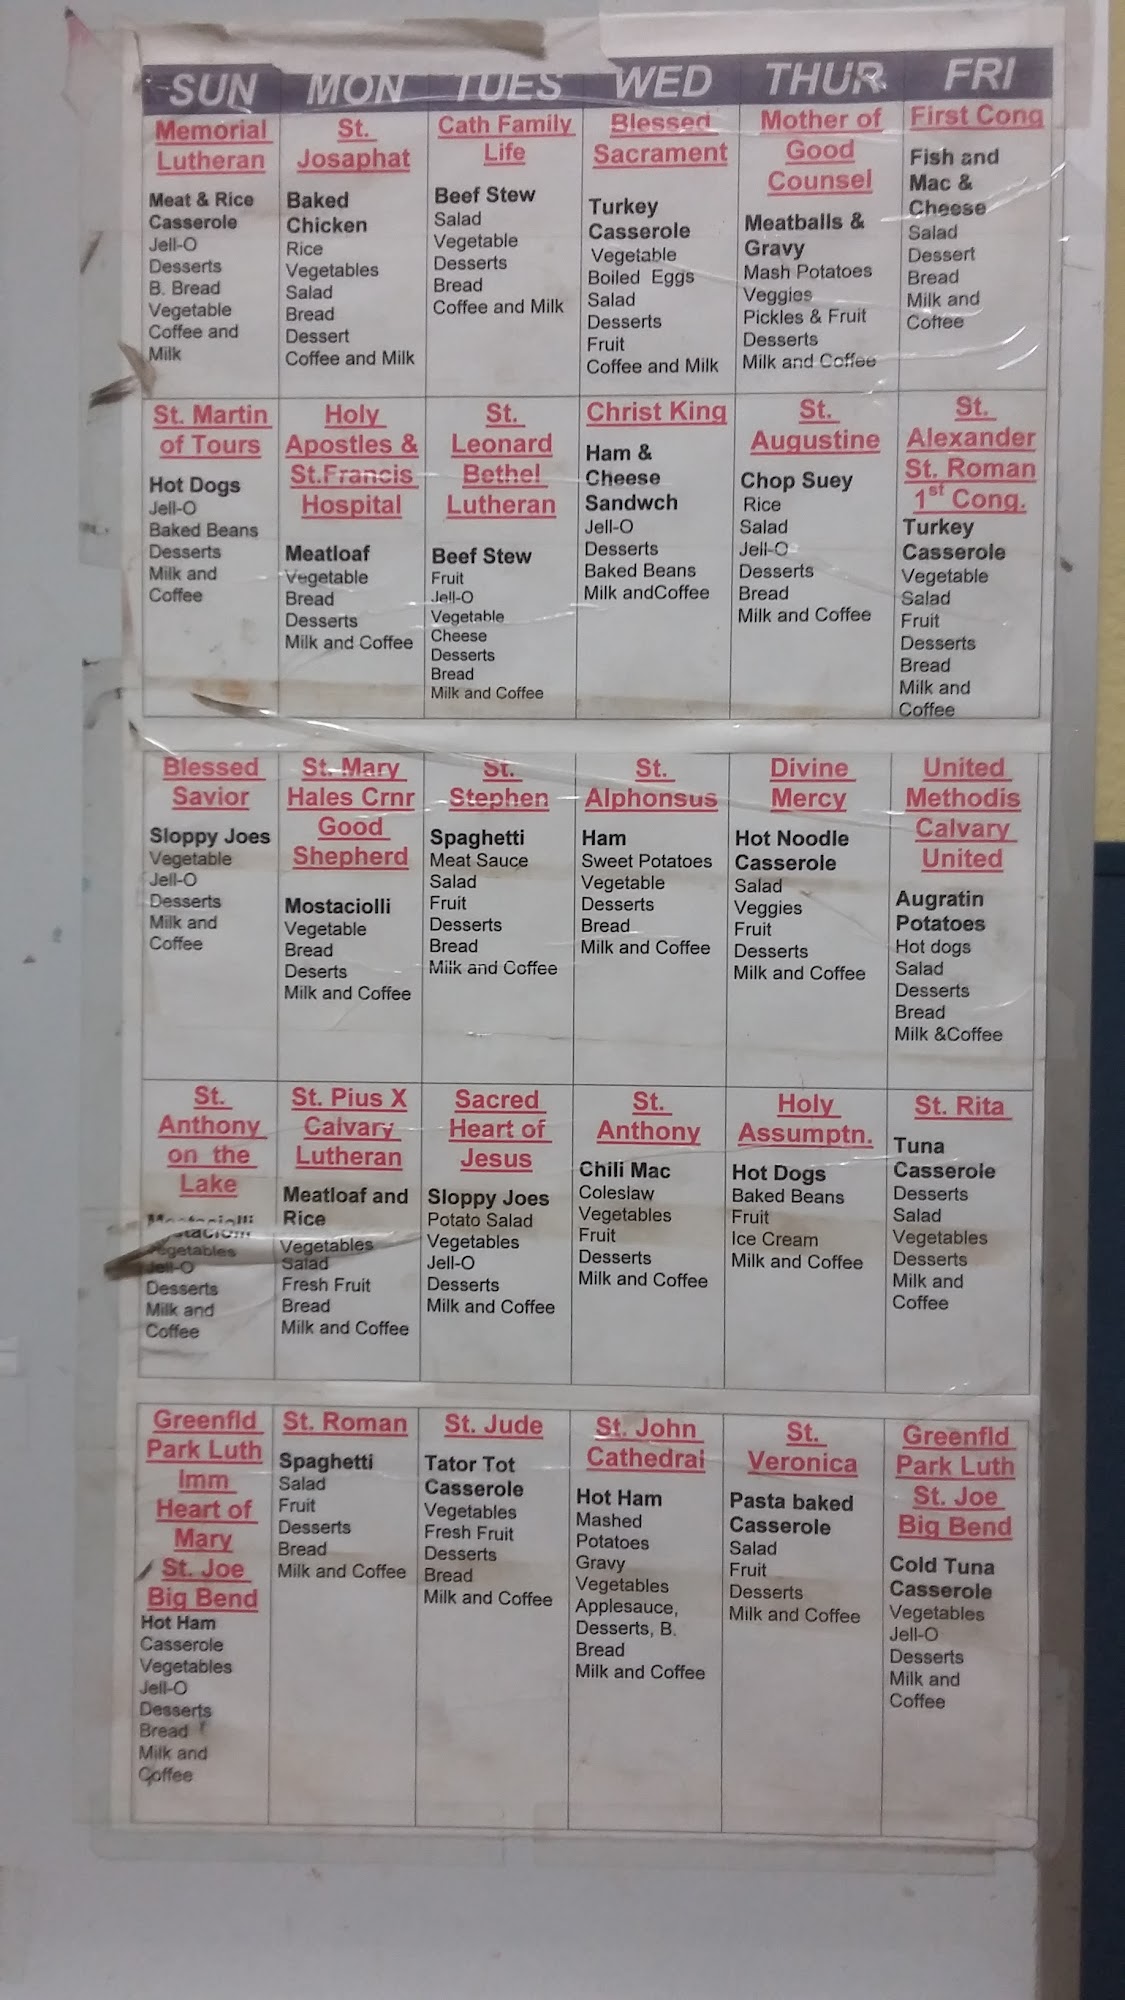 SUN MON TUES WED THUR FRI
Memorial
Lutheran
Meat & Rice
Casserole
Jell-O
Desserts
B. Bread
Vegetable
Coffee and
Milk
St.
Josaphat
Baked
Chicken
Rice
Vegetables
Salad
Bread
Dessert
Coffee and Milk
Cath Family
Life
Beef Stew
Salad
Vegetable
Desserts
Bread
Coffee and Milk
Blessed
Sacrament
Turkey
Casserole
Vegetable
Boiled Eggs
Salad
Desserts
Fruit
Coffee and Milk
Mother of
Good
Counsel
Meatballs &
Gravy
Mash Potatoes
Veggies
Pickles & Fruit
Desserts
Milk and Coffee
First Cong
Fish and
Mac &
Cheese
Salad
Dessert
Bread
Milk and
Coffee
St. Martin
of Tours
Hot Dogs
Jell-O
Baked Beans
Desserts
Milk and
Coffee
Holy
Apostles &
St.Francis
Hospital
Meatloaf
Vegetable
Bread
Desserts
Milk and Coffee
St.
Leonard
Bethel
Lutheran
Beef Stew
Fruit
Jell-O
Vegetable
Cheese
Desserts
Bread
Milk and Coffee
Christ King
Ham &
Cheese
Sandwch
Jell-O
Desserts
Baked Beans
Milk andCoffee
St.
Augustine
Chop Suey
Rice
Salad
Jell-O
Desserts
Bread
Milk and Coffee
St.
Alexander
St. Roman
1st Cong.
Turkey
Casserole
Vegetable
Salad
Fruit
Desserts
Bread
Milk and
Coffee
Blessed
Savior
Sloppy Joes
Vegetable
Jell-O
Desserts
Milk and
Coffee
St. Mary
Hales Crnr
Good
Shepherd
Mostaciolli
Vegetable
Bread
Deserts
Milk and Coffee
St.
Stephen
Spaghetti
Meat Sauce
Salad
Fruit
Desserts
Bread
Milk and Coffee
St.
Alphonsus
Ham
Sweet Potatoes
Vegetable
Desserts
Bread
Milk and Coffee
Divine
Mercy
Hot Noodle
Casserole
Salad
Veggies
Fruit
Desserts
Milk and Coffee
United
Methodis
Calvary
United
Augratin
Potatoes
Hot dogs
Salad
Desserts
Bread
Milk &Coffee
St.
Anthony
on the
Lake
Mostaciolli
Vegetables
Jell-O
Desserts
Milk and
Coffee
St. Pius X
Calvary
Lutheran
Meatloaf and
Rice
Vegetables
Salad
Fresh Fruit
Bread
Milk and Coffee
Sacred
Heart of
Jesus
Sloppy Joes
Potato Salad
Vegetables
Jell-O
Desserts
Milk and Coffee
St.
Anthony
Chili Mac
Coleslaw
Vegetables
Fruit
Desserts
Milk and Coffee
Holy
Assumptn.
Hot Dogs
Baked Beans
Fruit
Ice Cream
Milk and Coffee
St. Rita
Tuna
Casserole
Desserts
Salad
Vegetables
Desserts
Milk and
Coffee
Greenfld
Park Luth
Imm
Heart of
Mary
St. Joe
Big Bend
Hot Ham
Casserole
Vegetables
Jell-O
Desserts
Bread
Milk and
Coffee
St. Roman
Spaghetti
Salad
Fruit
Desserts
Bread
Milk and Coffee
St. Jude
Tator Tot
Casserole
Vegetables
Fresh Fruit
Desserts
Bread
Milk and Coffee
St. John
Cathedral
Hot Ham
Mashed
Potatoes
Gravy
Vegetables
Applesauce,
Desserts, B.
Bread
Milk and Coffee
St.
Veronica
Pasta baked
Casserole
Salad
Fruit
Desserts
Milk and Coffee
Greenfld
Park Luth
St. Joe
Big Bend
Cold Tuna
Casserole
Vegetables
Jell-O
Desserts
Milk and
Coffee